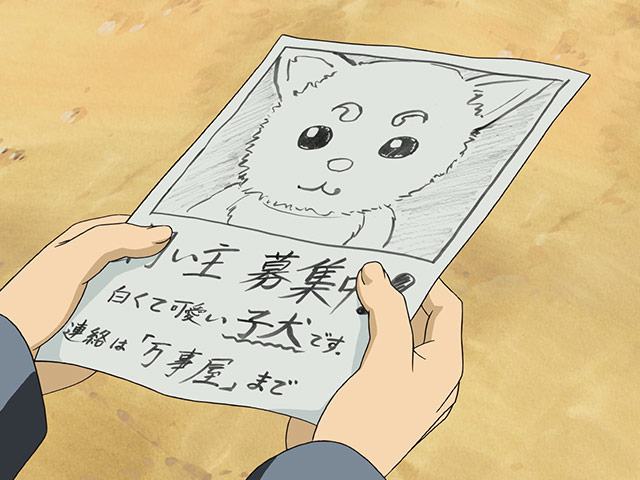 い主 募集中!
白くて可愛い子犬です.
連絡は「万事屋」まで